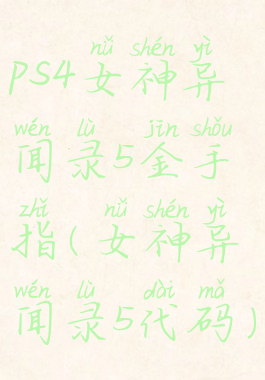 nǚ shén yì
PS4女神异
wén lù jīn shǒu
闻录5金手
zhǐ nǚ shén yì
指(女神异
wén lù dài mǎ
闻录5代码)